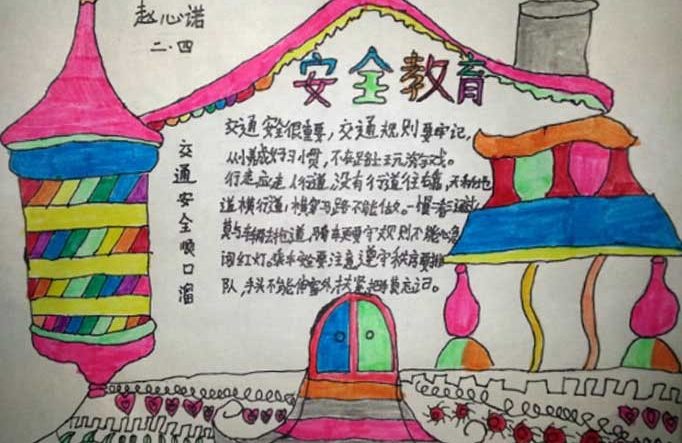 赵心诺
二.四
安全教育
交通安全顺口溜
交通安全很重要,交通规则要牢记,
从小养成好习惯,不在路上玩游戏。
行走应走人行道,没有行道往右靠,天桥地
道横行道,横穿马路不能做。一慢二看三通过,
莫与车辆去抢道,骑车更要守规则不能心急
闯红灯。乘车安要注意,遵守秩序要排
队,手头不能伸窗外,扶紧把手莫忘记。